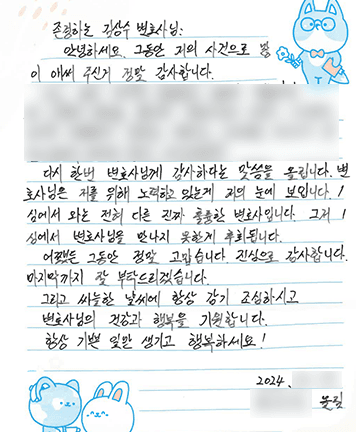 존경하는 김상수 변호사님:
안녕하세요. 그동안 저의 사건으로 많
이 애써 주신거 정말 감사합니다.
다시 한번 변호사님께 감사하다는 말씀을 올립니다. 변
호사님은 저를 위해 노력하고 있는게 저의 눈에 보입니다. 1
심에서 와는 전혀 다른 진짜 훌륭한 변호사입니다. 그저 1
심에서 변호사님을 만나지 못한게 후회됩니다.
어쨌든 그동안 정말 고맙습니다. 진심으로 감사합니다.
마지막까지 잘 부탁드리겠습니다.
그리고 싸늘한 날씨에 항상 감기 조심하시고
변호사님의 건강과 행복을 기원합니다.
항상 기쁜 일만 생기고 행복하세요!
2024.
올림